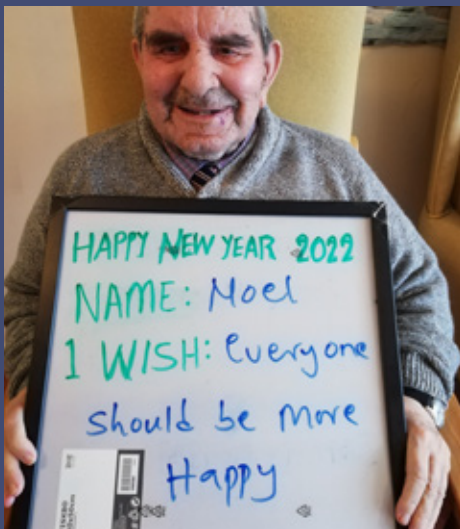 HAPPY NEW YEAR 2022
NAME: Noel
1 WISH: Everyone
should be more
Happy